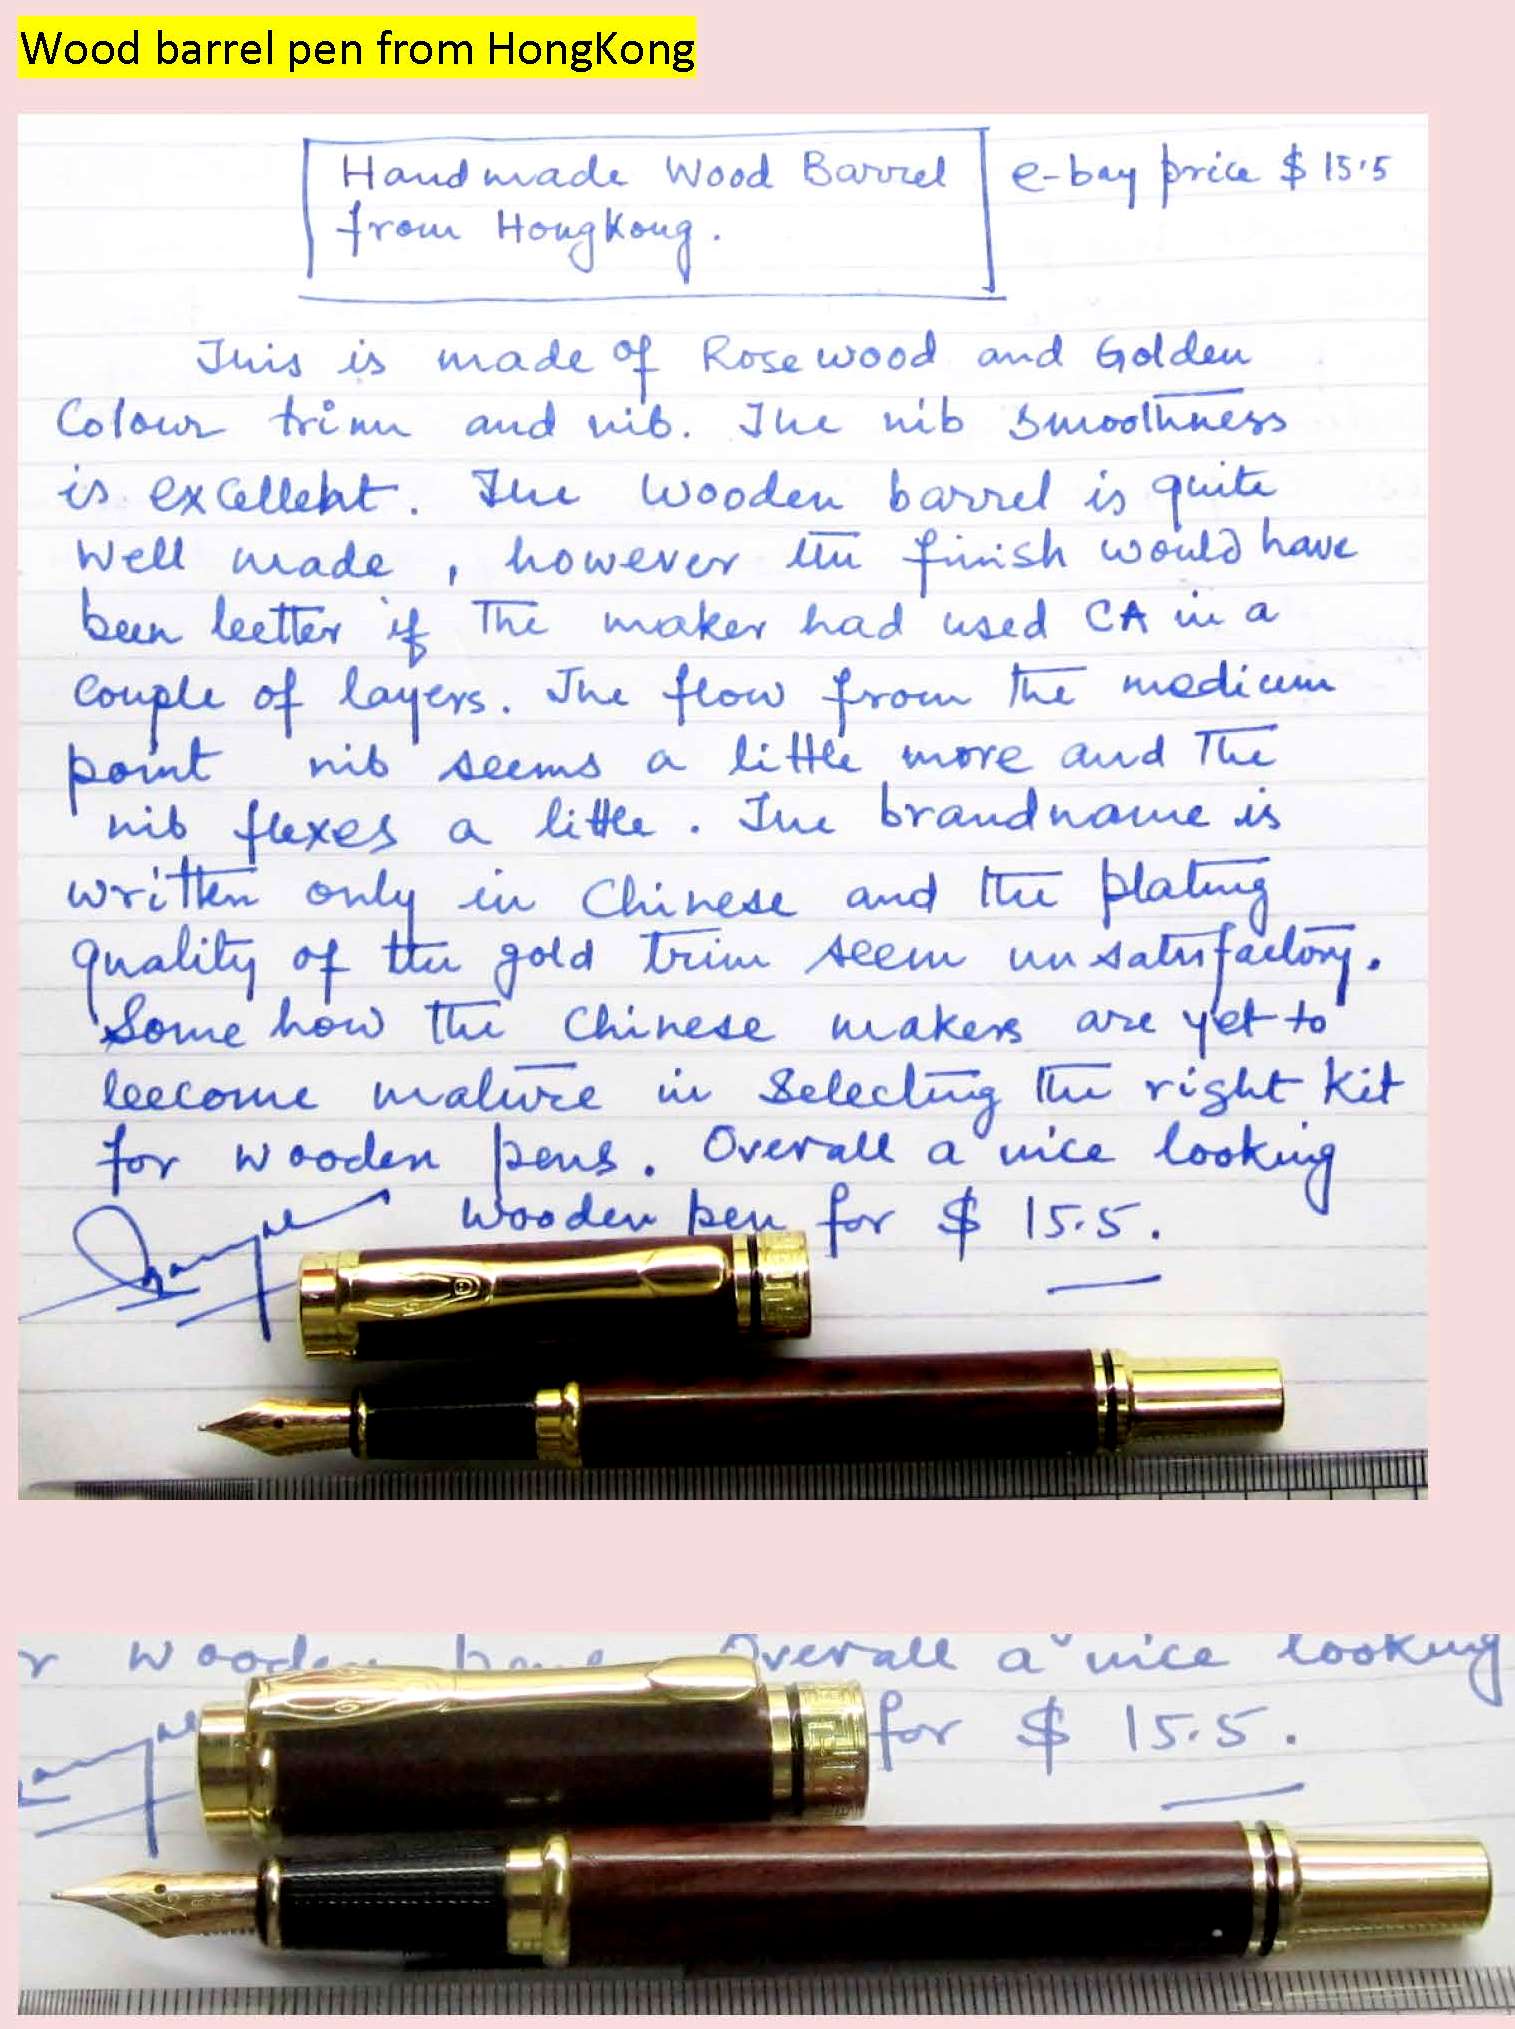 Wood barrel pen from HongKong
Handmade Wood Barrel
from HongKong.
e-bay price $ 15.5
This is made of Rosewood and Golden
Colour trim and nib. The nib smoothness
is excellent. The wooden barrel is quite
well made, however the finish would have
been better if the maker had used CA in a
couple of layers. The flow from the medium
point nib seems a little more and the
nib flexes a little. The brandname is
written only in Chinese and the plating
quality of the gold trim seem unsatisfactory.
Some how the Chinese makers are yet to
become mature in selecting the right kit
for wooden pens. Overall a nice looking
wooden pen for $ 15.5.
r wooden pens Overall a nice looking
for $ 15.5.